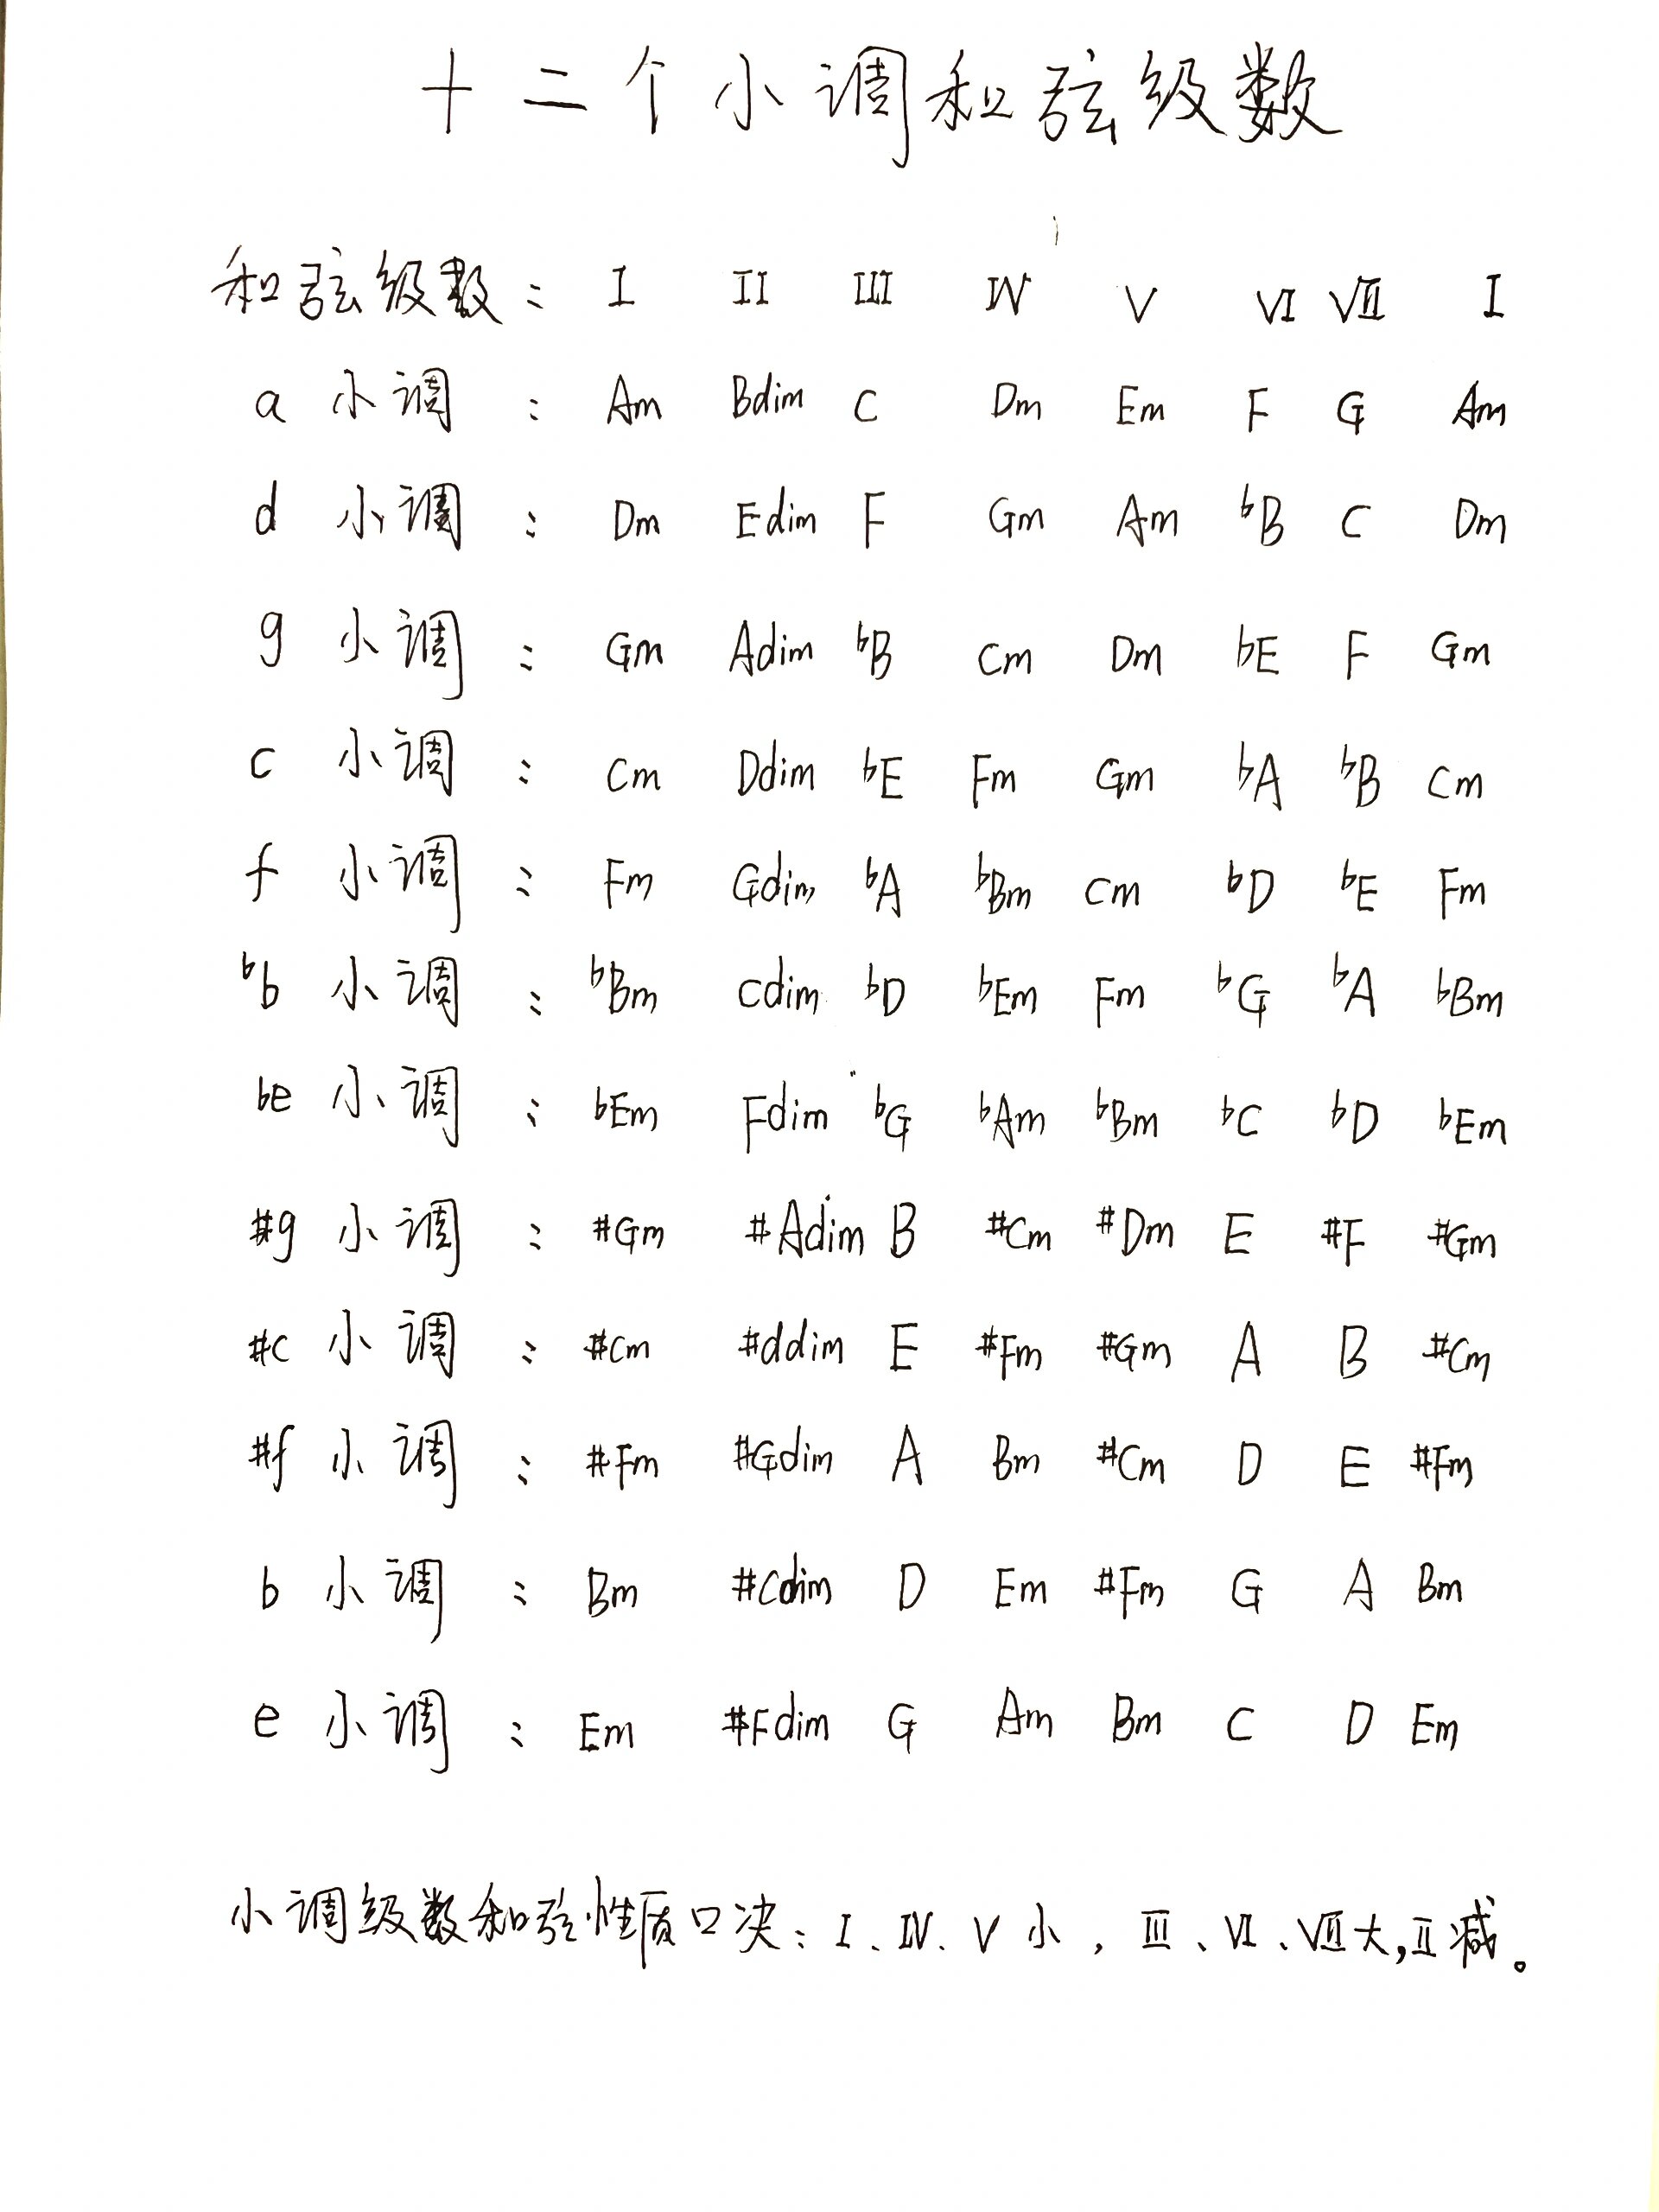 十二个小调和弦级数
和弦级数： I II III IV V VI VII I
a 小调 ： Am Bdim C Dm Em F G Am
d 小调 ： Dm Edim F Gm Am ♭B C Dm
g 小调 ： Gm Adim ♭B Cm Dm ♭E F Gm
c 小调 ： Cm Ddim ♭E Fm Gm ♭A ♭B Cm
f 小调 ： Fm Gdim ♭A ♭Bm Cm ♭D ♭E Fm
♭b 小调 ： ♭Bm Cdim ♭D ♭Em Fm ♭G ♭A ♭Bm
♭e 小调 ： ♭Em Fdim ♭G ♭Am ♭Bm ♭C ♭D ♭Em
#g 小调 ： #Gm #Adim B #Cm #Dm E #F #Gm
#c 小调 ： #Cm #ddim E #Fm #Gm A B #Cm
#f 小调 ： #Fm #Gdim A Bm #Cm D E #Fm
b 小调 ： Bm #Cdim D Em #Fm G A Bm
e 小调 ： Em #Fdim G Am Bm C D Em
小调级数和弦性质口决：I、IV、V 小，III、VI、VII大，II减。